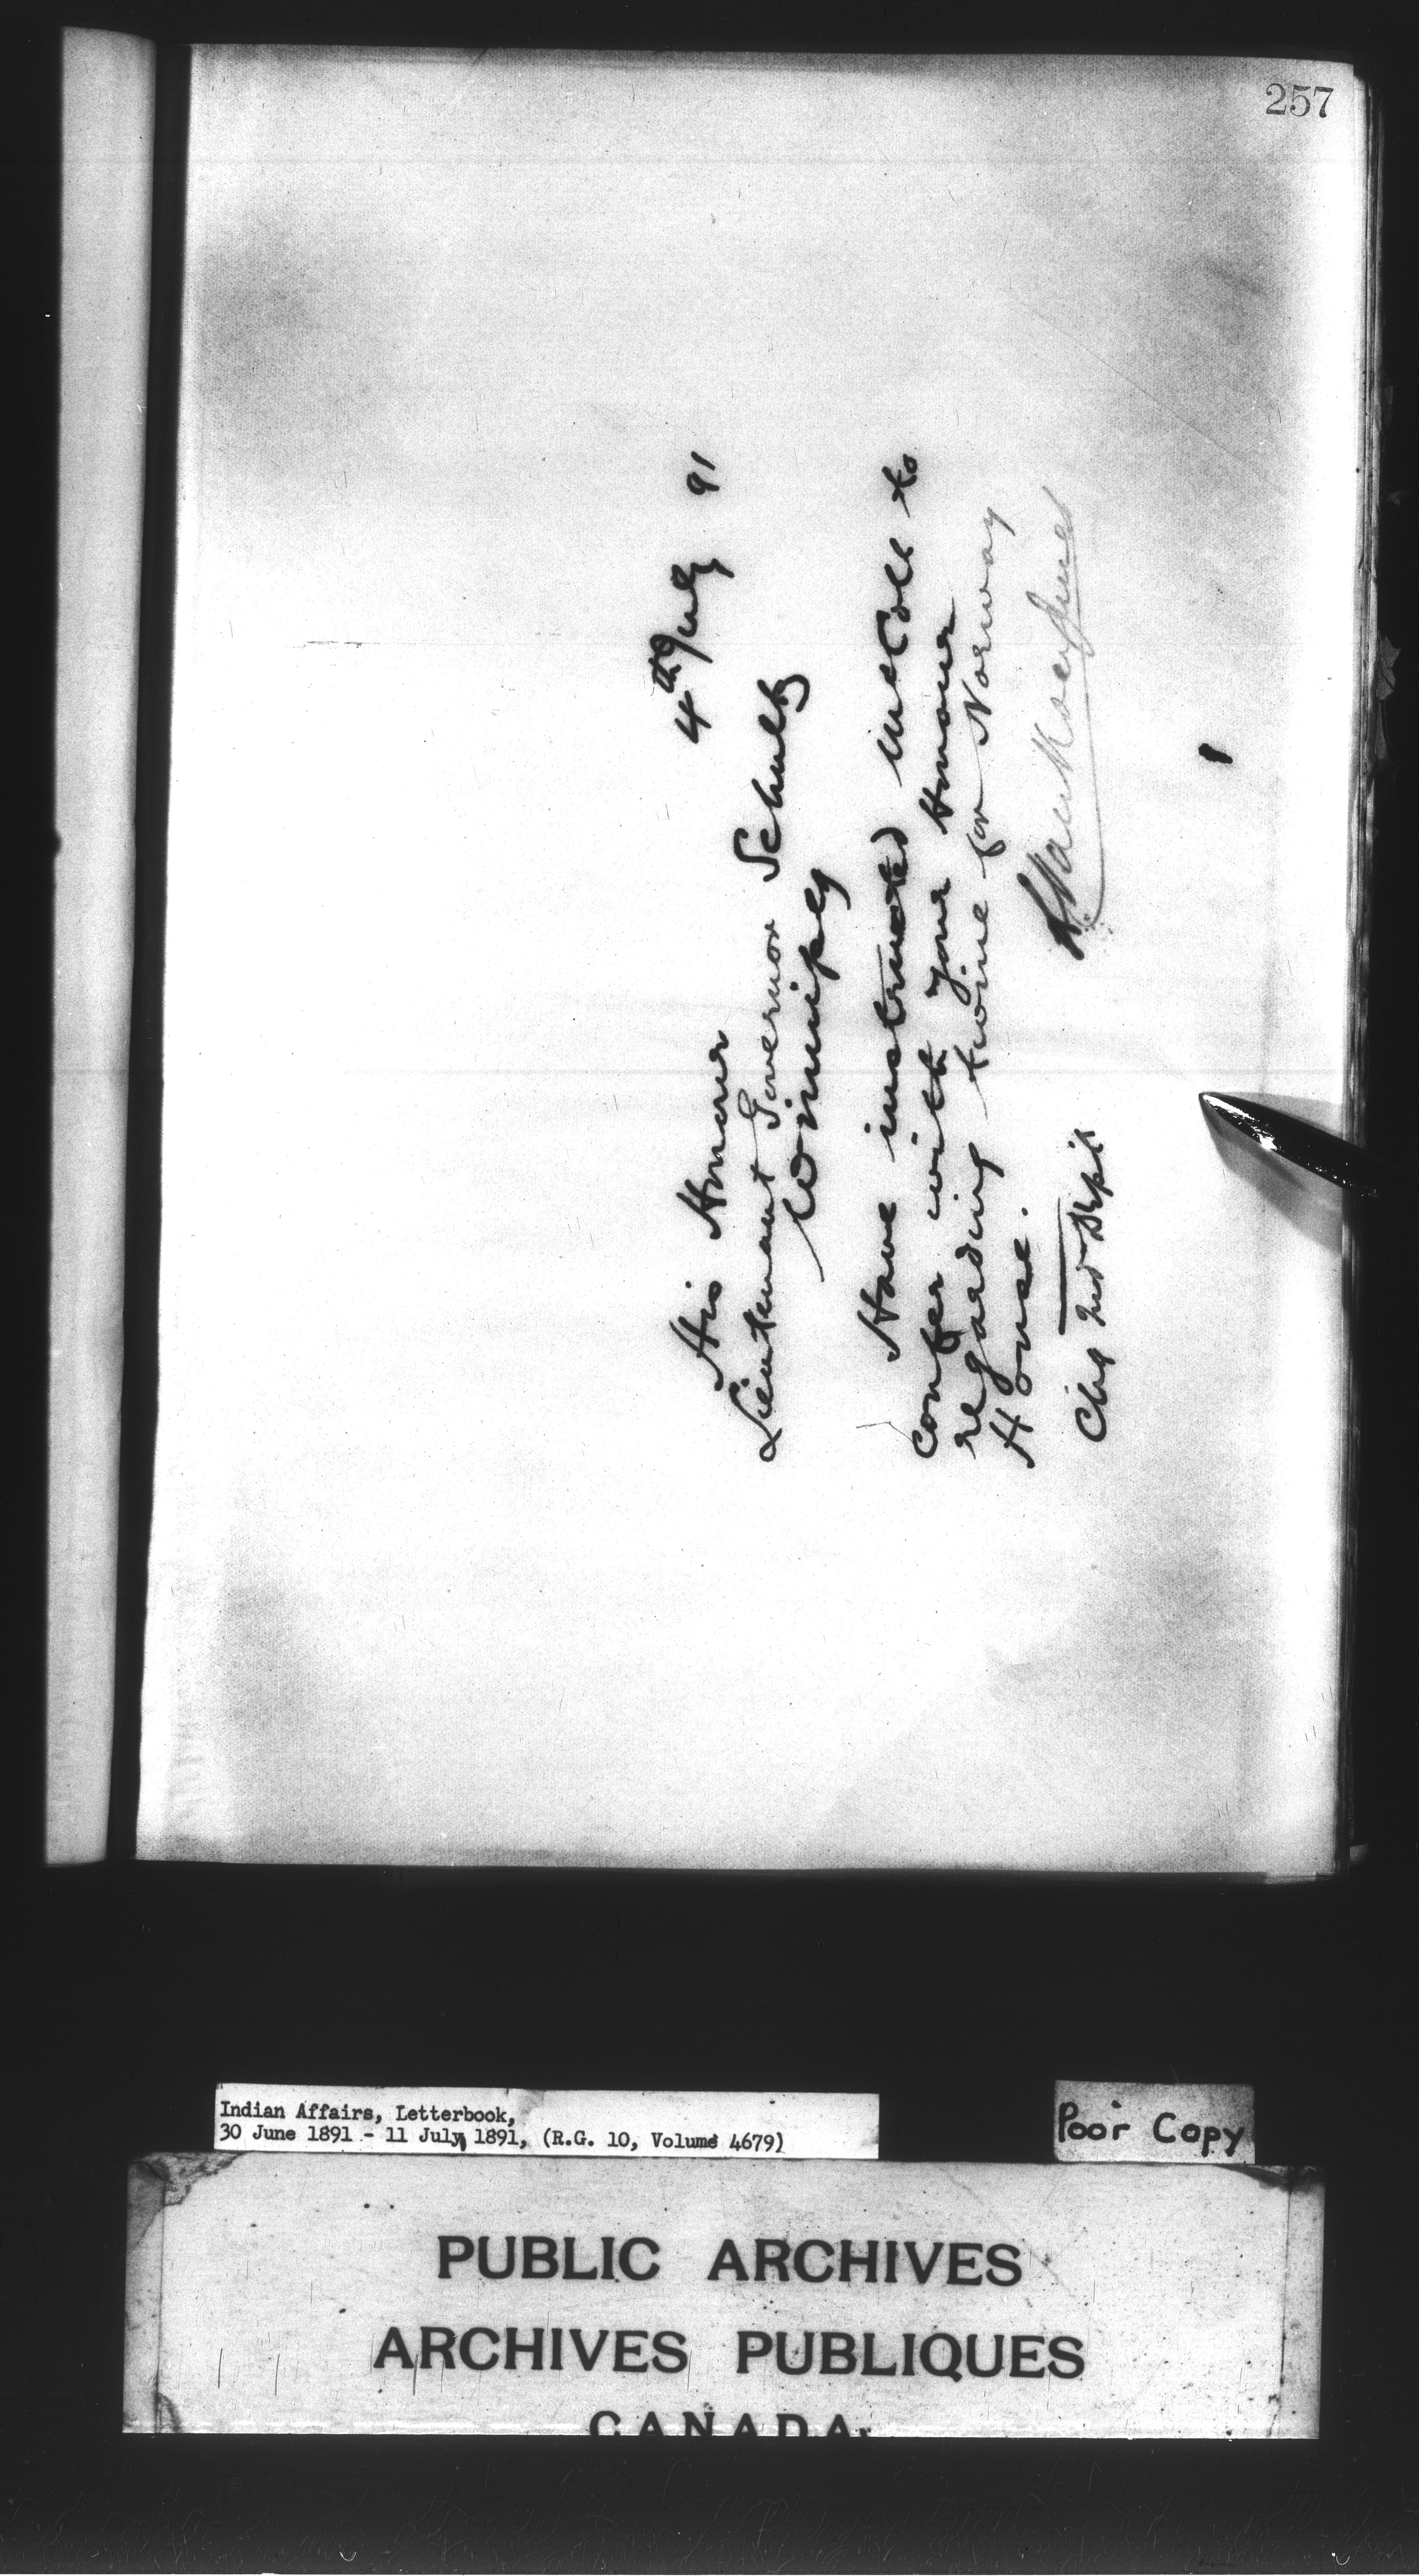 257
4th July 91
His Honour
Lieutenant Governor Schultz
Winnipeg
Have instructed McColl to
confer with your Honour
regarding twine for Norway
House.
Chg Ind Dept
Indian Affairs, Letterbook,
30 June 1891 - 11 July 1891, (R.G. 10, Volume 4679)
Poor Copy
PUBLIC ARCHIVES
ARCHIVES PUBLIQUES
CANADA